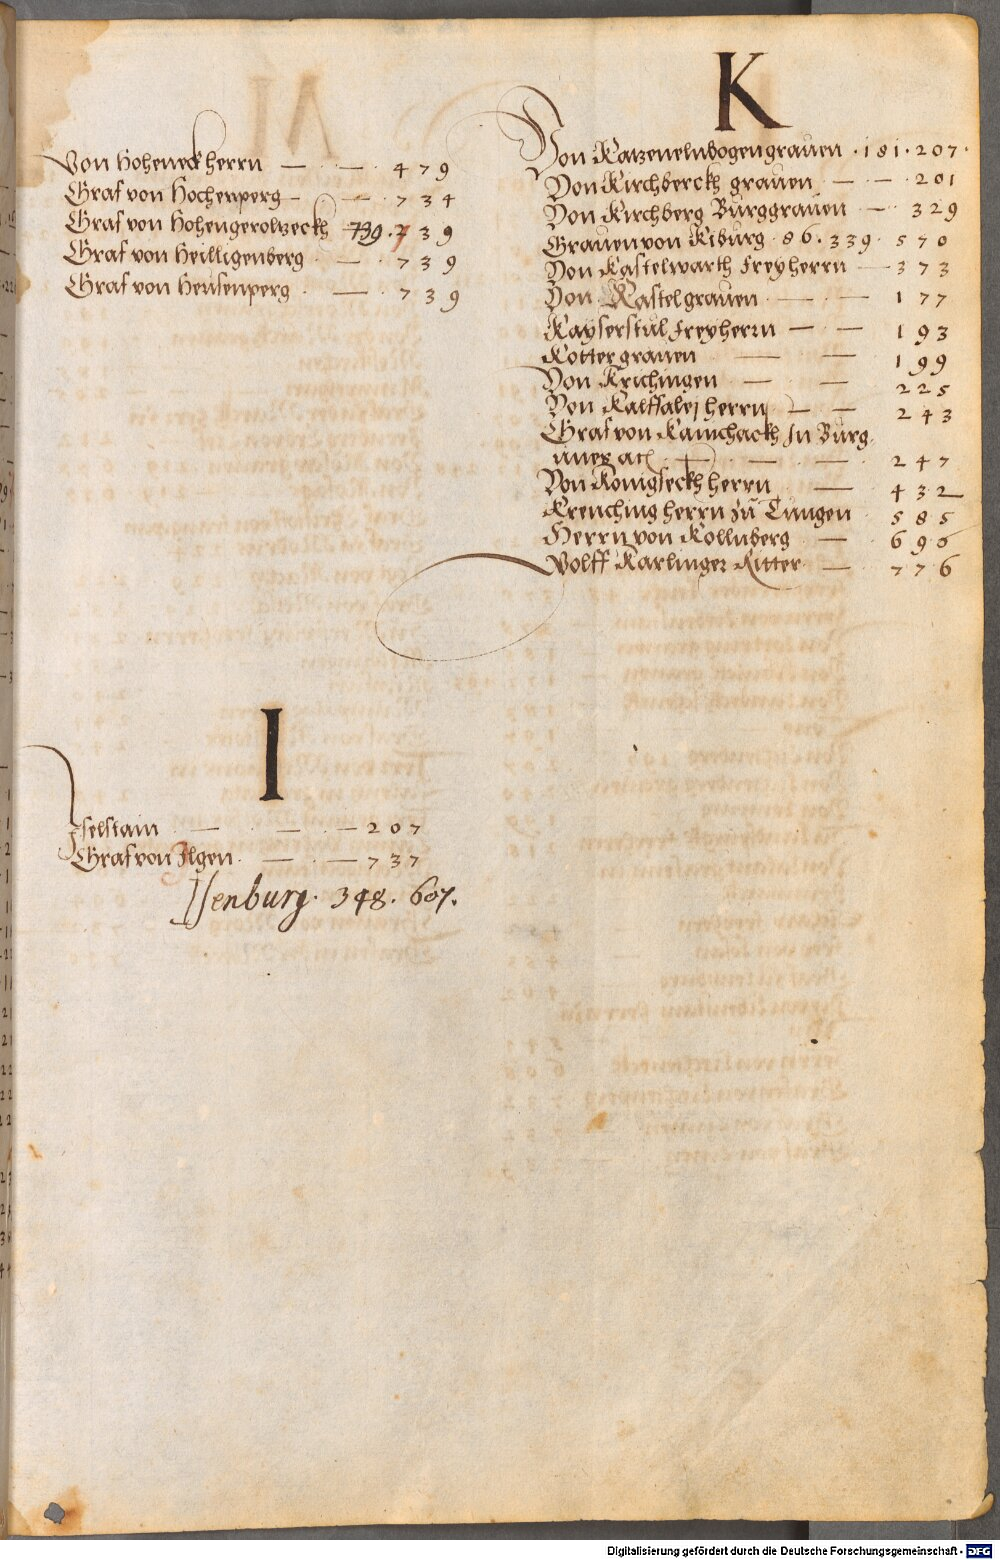 Von Hoheneck herrn — — 479
Graf von Hochenperg — — 734
Graf von Hohengeroltzeckh 739. 739
Graf von Heilligenberg — 739
Graf von Heusenperg — 739
I
Iselstain — — — 207
Graf von Ilgen — — 737
Isenburg. 348. 607.
K
Von Katzenelnbogen grauen . 181 . 207 .
Von Kirchberckh grauen — — 201
Von Kirchberg Burggrauen — 329
Grauen von Kiburg . 86 . 339 . 570
Von Kastelwarth Freyherrn — 373
Von Kastel grauen — — 177
Kayserstul Freyherrn — — 193
Kotter grauen — — 199
Von Krichingen — — 225
Von herrn — — 243
Graf von In Burg
— — 247
Von Konigseckh herrn — 432
Krenching herrn zu Tungen 585
Herrn von Kollnberg — 696
Wolff Karlinger Ritter — 776
Digitalisierung gefördert durch die Deutsche Forschungsgemeinschaft - DFG